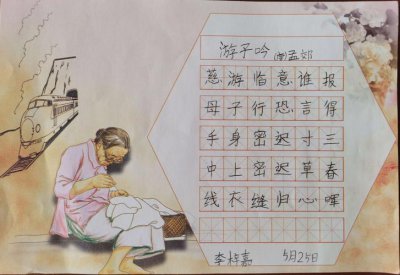 游子吟 (唐)孟郊
慈母手中线
游子身上衣
临行密密缝
意恐迟迟归
谁言寸草心
报得三春晖
李梓嘉 5月25日